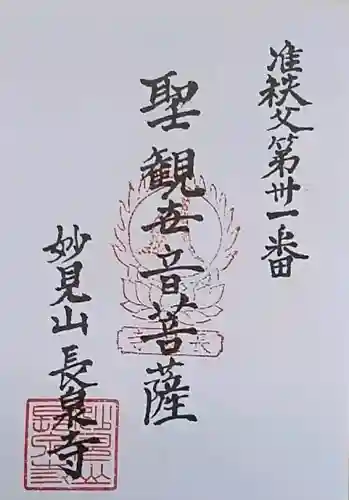 准秩父第卅一番
聖観世音菩薩
妙見山長泉寺